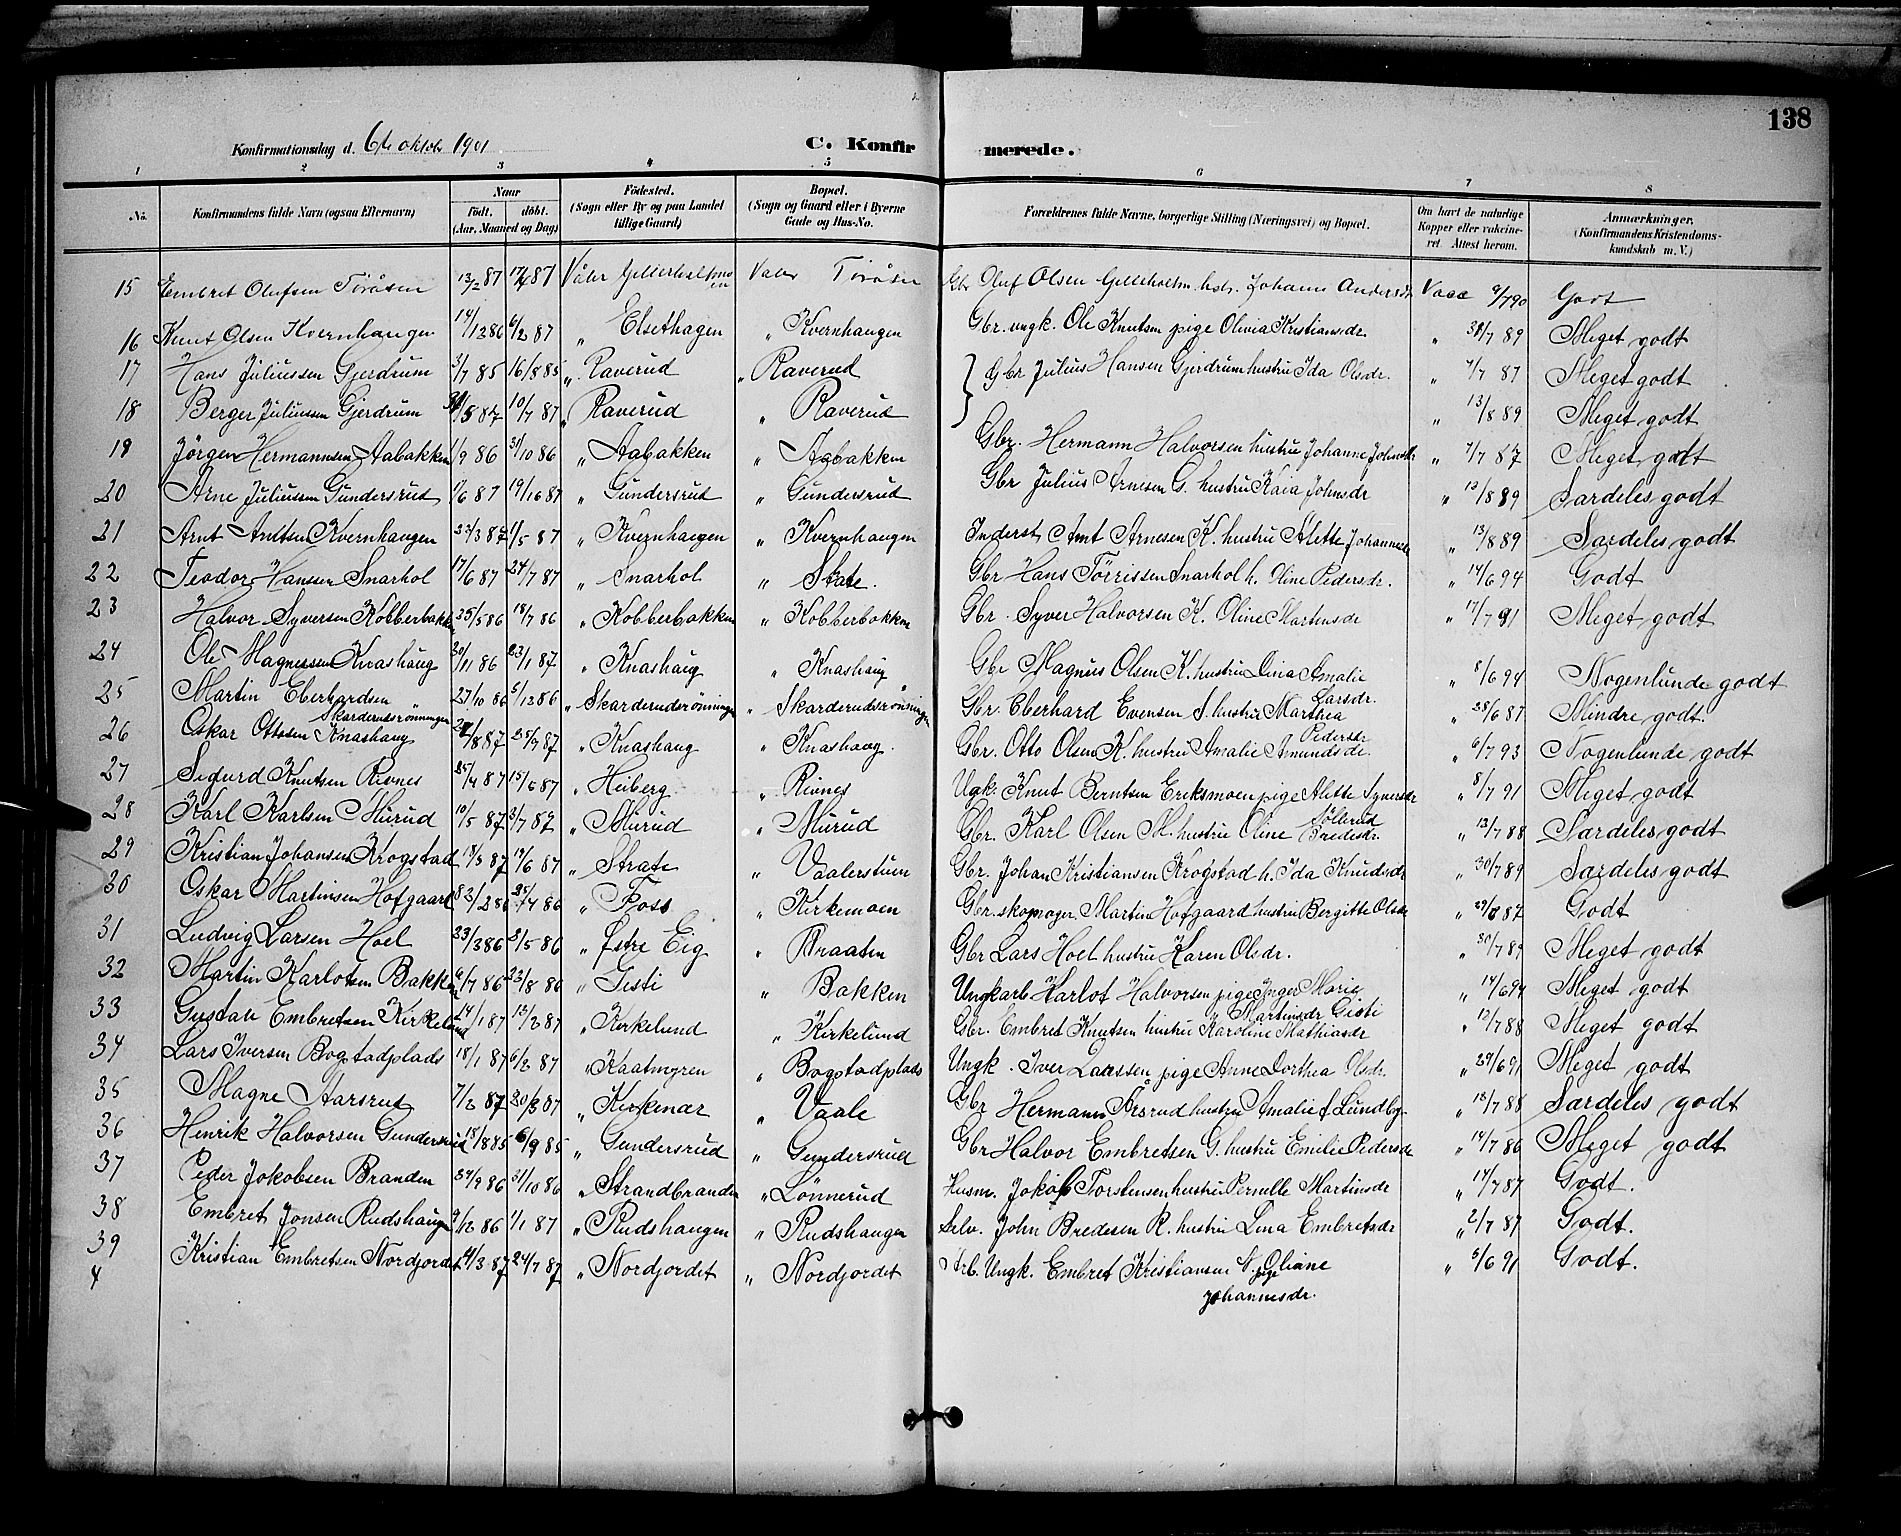 138
Konfirmationsdag d. 6te oktobr 1901 C. Konfirmerede.
1 2 3 4 5 6 7 8
No. Konfirmandens fulde Navn (ogsaa Efternavn) Naar födt, döbt. (Aar, Maaned og Dag) Födested. (Sogn eller By og paa Landet tillige Gaard) Bopæl. (Sogn og Gaard eller i Byerne Gade og Hus-No. Forældrenes fulde Navne, borgerlige Stilling (Næringsvei) og Bopæl. Om havt de naturlige Kopper eller vakcineret. Attest herom. Anmærkninger. (Konfirmandens Kristendomskundskab m. V.)
15 Embret Olufsen Töråsen 13/2 87 Våler Töråsen Gbr Oluf Olsen hstr. Johanne Andersdr Vacc 9/7 90 Godt
16 Knut Olsen Kvernhaugen 14/12 86 6/2 87 " Elsethagen " Kvernhaugen Gbr. ungk. Ole Knutsen pige Olivia Kristiansdr. " 31/7 89 Meget godt
17 Hans Juliussen Gjerdrum 3/7 85 16/8 85 " Raverud " Raverud Gbr Julius Hansen Gjerdrum hustru Ida Olsdr. " 7/7 87 Meget godt
18 Berger Juliussen Gjerdrum 31/5 87 10/7 87 " Raverud " Raverud " 13/8 89 Meget godt
19 Jörgen Hermannsen Aabakken 1/9 86 31/10 86 " Aabakken " Aabakken Gbr. Hermann Halvorsen hustru Johanne Johnsdr " 7/7 87 Meget godt
20 Arne Juliussen Gundersrud 1/6 87 19/10 87 " Gundersrud " Gundersrud Gbr Julius Arnesen G. hustru Kaia Johnsdr " 13/8 89 Særdeles godt
21 Arnt Arntsen Kvernhaugen 23/3 87 1/5 87 " Kvernhaugen " Kvernhaugen Inderst Arnt Arnesen K. hustru Alette Johannesdr " 13/8 89 Særdeles godt
22 Teodor Hanssen Snarhol 17/6 87 24/7 87 " Snarhol " Skate. Gbr Hans Törrissen Snarhol h. Oline Pedersdr. " 14/6 94 Godt
23 Halvor Syversen Kobberbakken 25/5 86 18/7 86 " Kobberbakken " Kobberbakken Gbr. Syver Halvorsen K. Oline Martinsdr " 17/7 91 Meget godt
24 Ole Magnussen Knashaug 30/11 86 23/1 87 " Knashaug " Knashaug Gbr Magnus Olsen K. hustru Dina Amalie Larsdr. " 8/6 94 Nogenlunde godt
25 Martin Eberhardsen Skarderudsrönningen 27/10 86 5/12 86 " Skarderudsrönningen " Skarderudsrönningen Gbr. Eberhard Evensen S. hustru Marthea Pedersdr " 28/6 87 Mindre godt.
26 Oskar Ottosen Knashaug 87 25/7 87 " Knashaug " Knashaug. Gbr. Otto Olsen K. hustru Amalie Amundsdr. " 6/7 93 Nogenlunde godt
27 Sigurd Knutsen Risnes 25/4 87 15/6 87 " Heiberg " Risnes Ugk. Knut Berntsen Eriksmoen pige Alette Syversdr Söllerud " 8/7 91 Meget godt
28 Karl Karlsen Murud 10/5 87 3/7 87 " Murud " Murud Gbr. Karl Olsen M. hustru Oline Bredesdr. " 13/7 88 Særdeles godt
29 Kristian Johansen Krogstad 18/5 87 19/6 87 " Strate " Vaalerstuen Gbr. Johan Kristiansen Krogstad h. Ida Knudsdr " 30/7 89 Særdeles godt
30 Oskar Martinsen Hofgaard 86 25/4 86 " Foss " Kirkemoen Gbr. skomager Martin Hofgaard hustru Bergitte Olsdr " 87 Godt
31 Ludvig Larsen Hoel 23/3 86 2/5 86 " Östre Eig " Braaten Gbr Lars Hoel hustru Karen Olsdr. " 30/7 89 Meget godt
32 Martin Karlotsen Bakken 6/7 86 22/8 86 " Gisti " Bakken Ungkarl Karlot Halvorsen pige Inger Marie Martinsdr Gisti " 14/6 94 Meget godt
33 Gustav Embretsen Kirkelund 24/1 87 13/2 87 " Kirkelund " Kirkelund Gbr. Embret Knutsen hustru Karoline Mathiasdr " 12/7 88 Meget godt
34 Lars Iversen Bogstadplads 18/1 87 6/2 87 " Kaatmyren " Bogstadplads Ungk. Iver Larssen pige Anne Dorthea Olsdr. " 29/6 91 Meget godt
35 Magne Aarsrud 7/2 87 20/3 87 " Kirkenær " Vaale Gbr Hermann Årsrud hustru Amalie f Lundby. " 13/7 88 Særdeles godt
36 Henrik Halvorsen Gundersrud 18/8 85 6/9 85 " Gundersrud " Gundersrud Gbr Halvor Embretsen G. hustru Emilie Pedersdr " 14/7 86 Meget godt
37 Peder Jakobsen Branden 24/9 86 31/10 86 " Strandbranden " Lönnerud Husm. Jakob Torstensen hustru Pernelle Martinsdr " 14/7 87 Godt.
38 Embret Jonsen Rudshaugen 9/12 86 1/1 87 " Rudshaugen " Rudshaugen Selv. John Bredesen R. hustru Lina Embretsdr " 2/7 87 Godt.
39 Kristian Embretsen Nordjordet 14/3 87 24/7 87 " Nordjordet " Nordjordet Arb. Ungk. Embret Kristiansen N. pige Oliane Johannesdr. " 5/6 91 Godt.
4